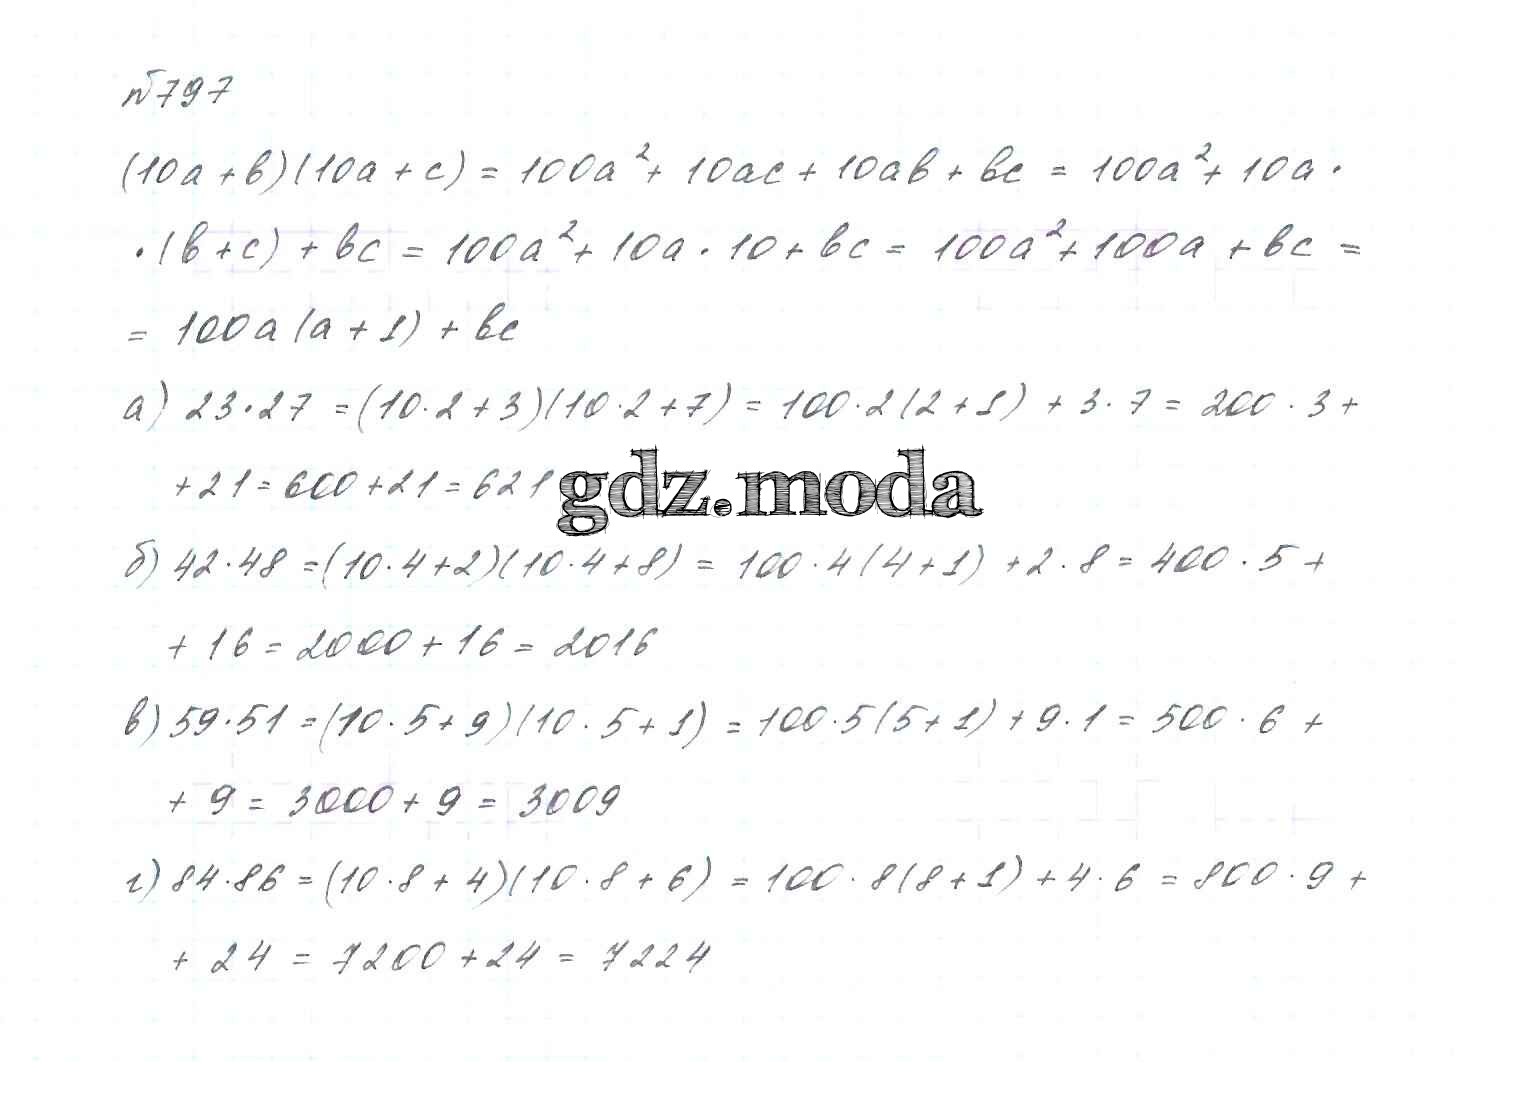 №797
(10a + в)(10a + c) = 100a² + 10ac + 10aв + вc = 100a² + 10a ·
· (в + c) + вc = 100a² + 10a · 10 + вc = 100a² + 100a + вc =
= 100a (a + 1) + вc
а) 23 · 27 = (10 · 2 + 3)(10 · 2 + 7) = 100 · 2 (2 + 1) + 3 · 7 = 200 · 3 +
+ 21 = 600 + 21 = 621
gdz.moda
б) 42 · 48 = (10 · 4 + 2)(10 · 4 + 8) = 100 · 4 (4 + 1) + 2 · 8 = 400 · 5 +
+ 16 = 2000 + 16 = 2016
в) 59 · 51 = (10 · 5 + 9)(10 · 5 + 1) = 100 · 5 (5 + 1) + 9 · 1 = 500 · 6 +
+ 9 = 3000 + 9 = 3009
г) 84 · 86 = (10 · 8 + 4)(10 · 8 + 6) = 100 · 8 (8 + 1) + 4 · 6 = 800 · 9 +
+ 24 = 7200 + 24 = 7224